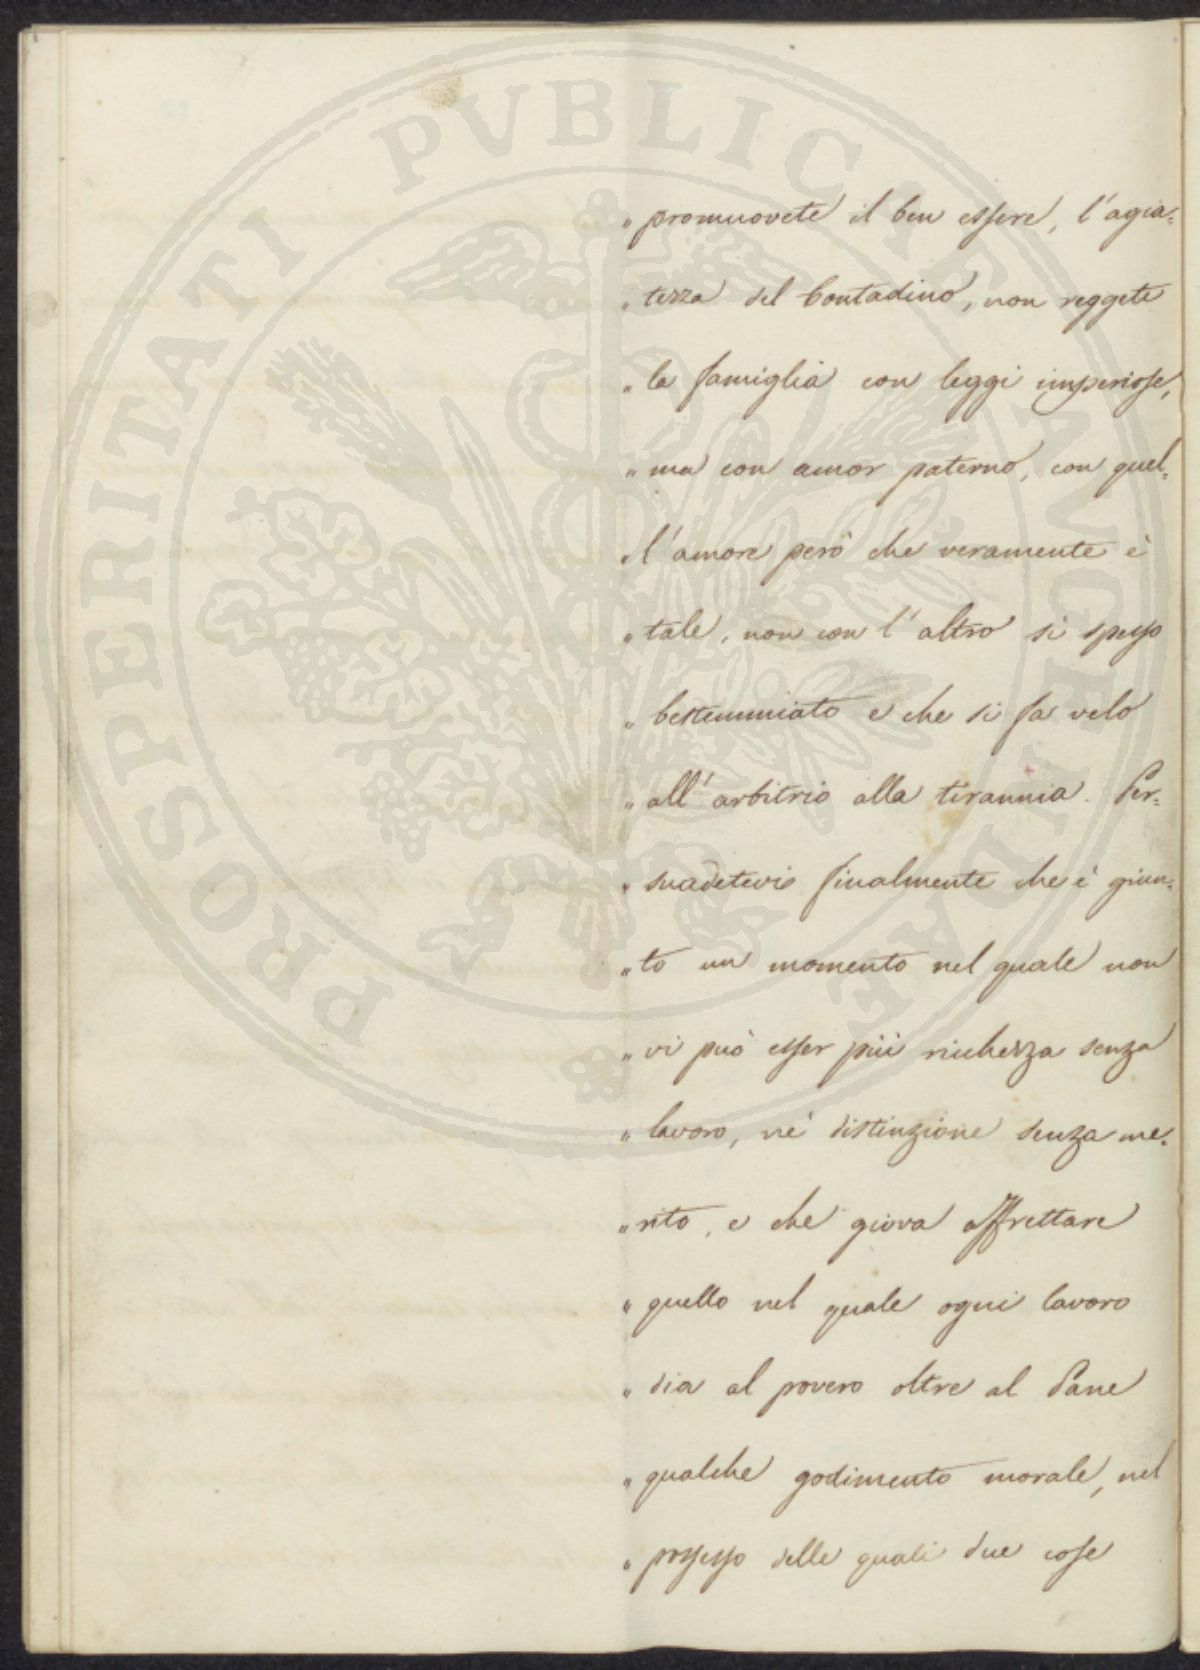 PROSPERITATI PVBLICAE AVGENDAE
„ promuovete il ben essere, l'agia=
„ tezza del Contadino, non reggete
„ la famiglia con leggi imperiose,
„ ma con amor paterno, con quel=
„ l'amore però che veramente è
„ tale, non con l'altro sì spesso
„ bestemmiato e che si fa velo
„ all'arbitrio alla tirannia. Per=
„ suadetevi finalmente che è giun=
„ to un momento nel quale non
„ vi può esser più richezza senza
„ lavoro, nè distinzione senza me=
„ rito, e che giova affrettare
„ quello nel quale ogni lavoro
„ dia al povero oltre al Pane
„ qualche godimento morale, nel
„ possesso delle quali due cose